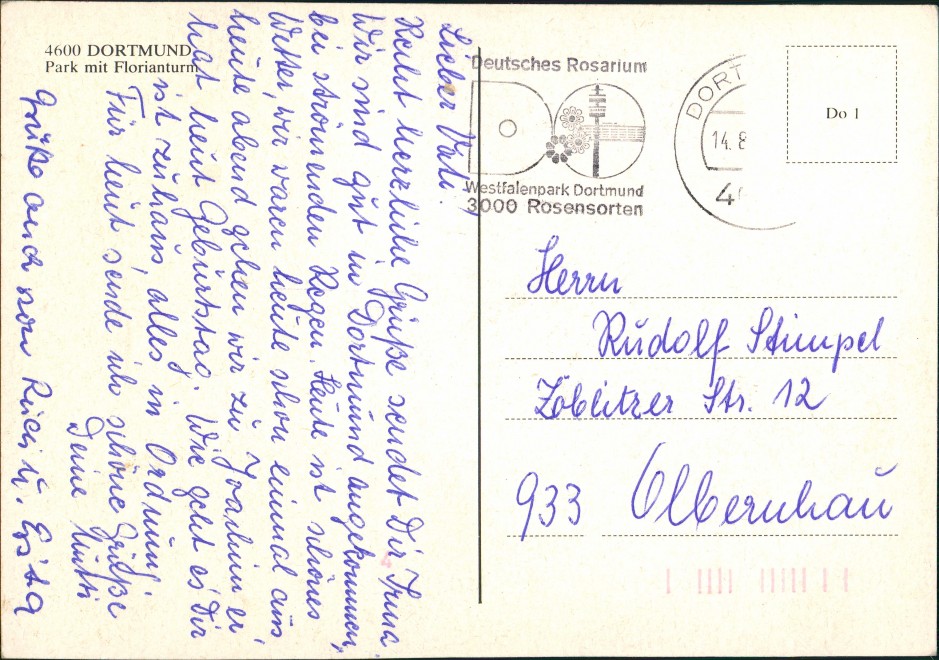 4600 DORTMUND
Park mit Florianturm
Lieber Vati!
Recht herzliche Grüße sendet Dir
Wir sind gut in Dortmund angekommen,
bei strömenden Regen. Heute ist schönes
Wetter, wir waren heute schon einmal aus
heute abend gehen wir zu Joachim er
hat heut Geburtstag. Wie geht es Dir
ist zuhaus alles in Ordnung
Für heut sende ich schöne Grüße
Deine Mutti
Grüße auch von
Deutsches Rosarium
Westfalenpark Dortmund
3000 Rosensorten
DORT
14.8
4
Do 1
Herrn
Rudolf Stimpel
Zöblitzer Str. 12
933 Olbernhau